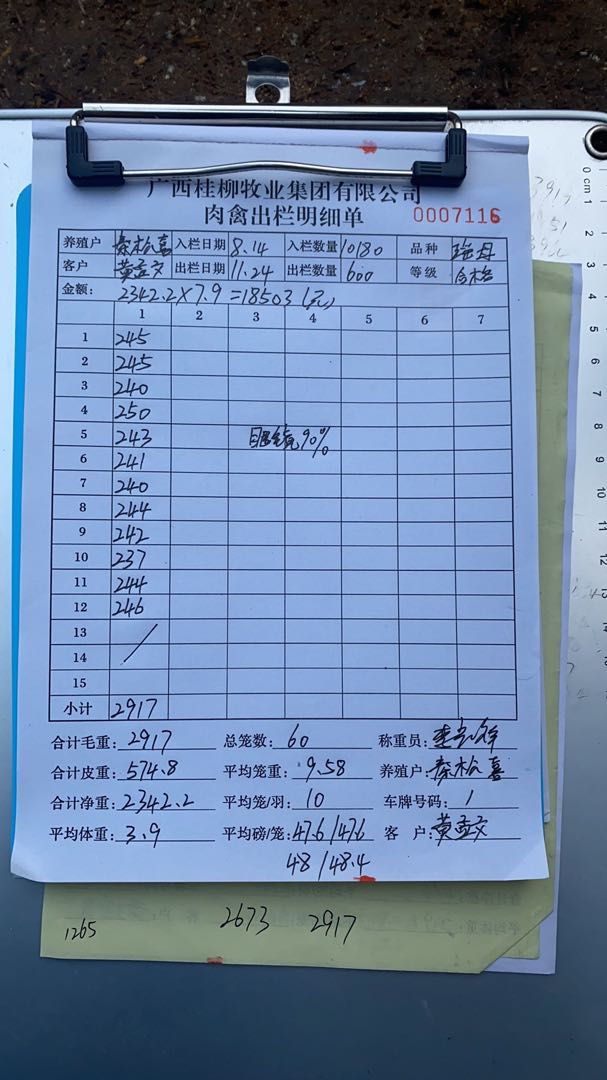 广西桂柳牧业集团有限公司
肉禽出栏明细单 0007116
养殖户 秦松喜 入栏日期 8.14 入栏数量 10180 品种 瑶母
客户 黄孟文 出栏日期 11.24 出栏数量 600 等级 合格
金额: 2342.2×7.9=18503(元)
1 2 3 4 5 6 7
1 245
2 245
3 240
4 250
5 243 90%
6 241
7 240
8 244
9 242
10 237
11 244
12 246
13
14
15
小计 2917
合计毛重: 2917 总笼数: 60 称重员:
合计皮重: 574.8 平均笼重: 9.58 养殖户: 秦松喜
合计净重: 2342.2 平均笼/羽: 10 车牌号码: /
平均体重: 3.9 平均磅/笼: 47.6/47.6 客 户: 黄孟文
48/48.4
1265 2673 2917
0 cm 1
2
3
4
5
6
7
8
9
10
11
12